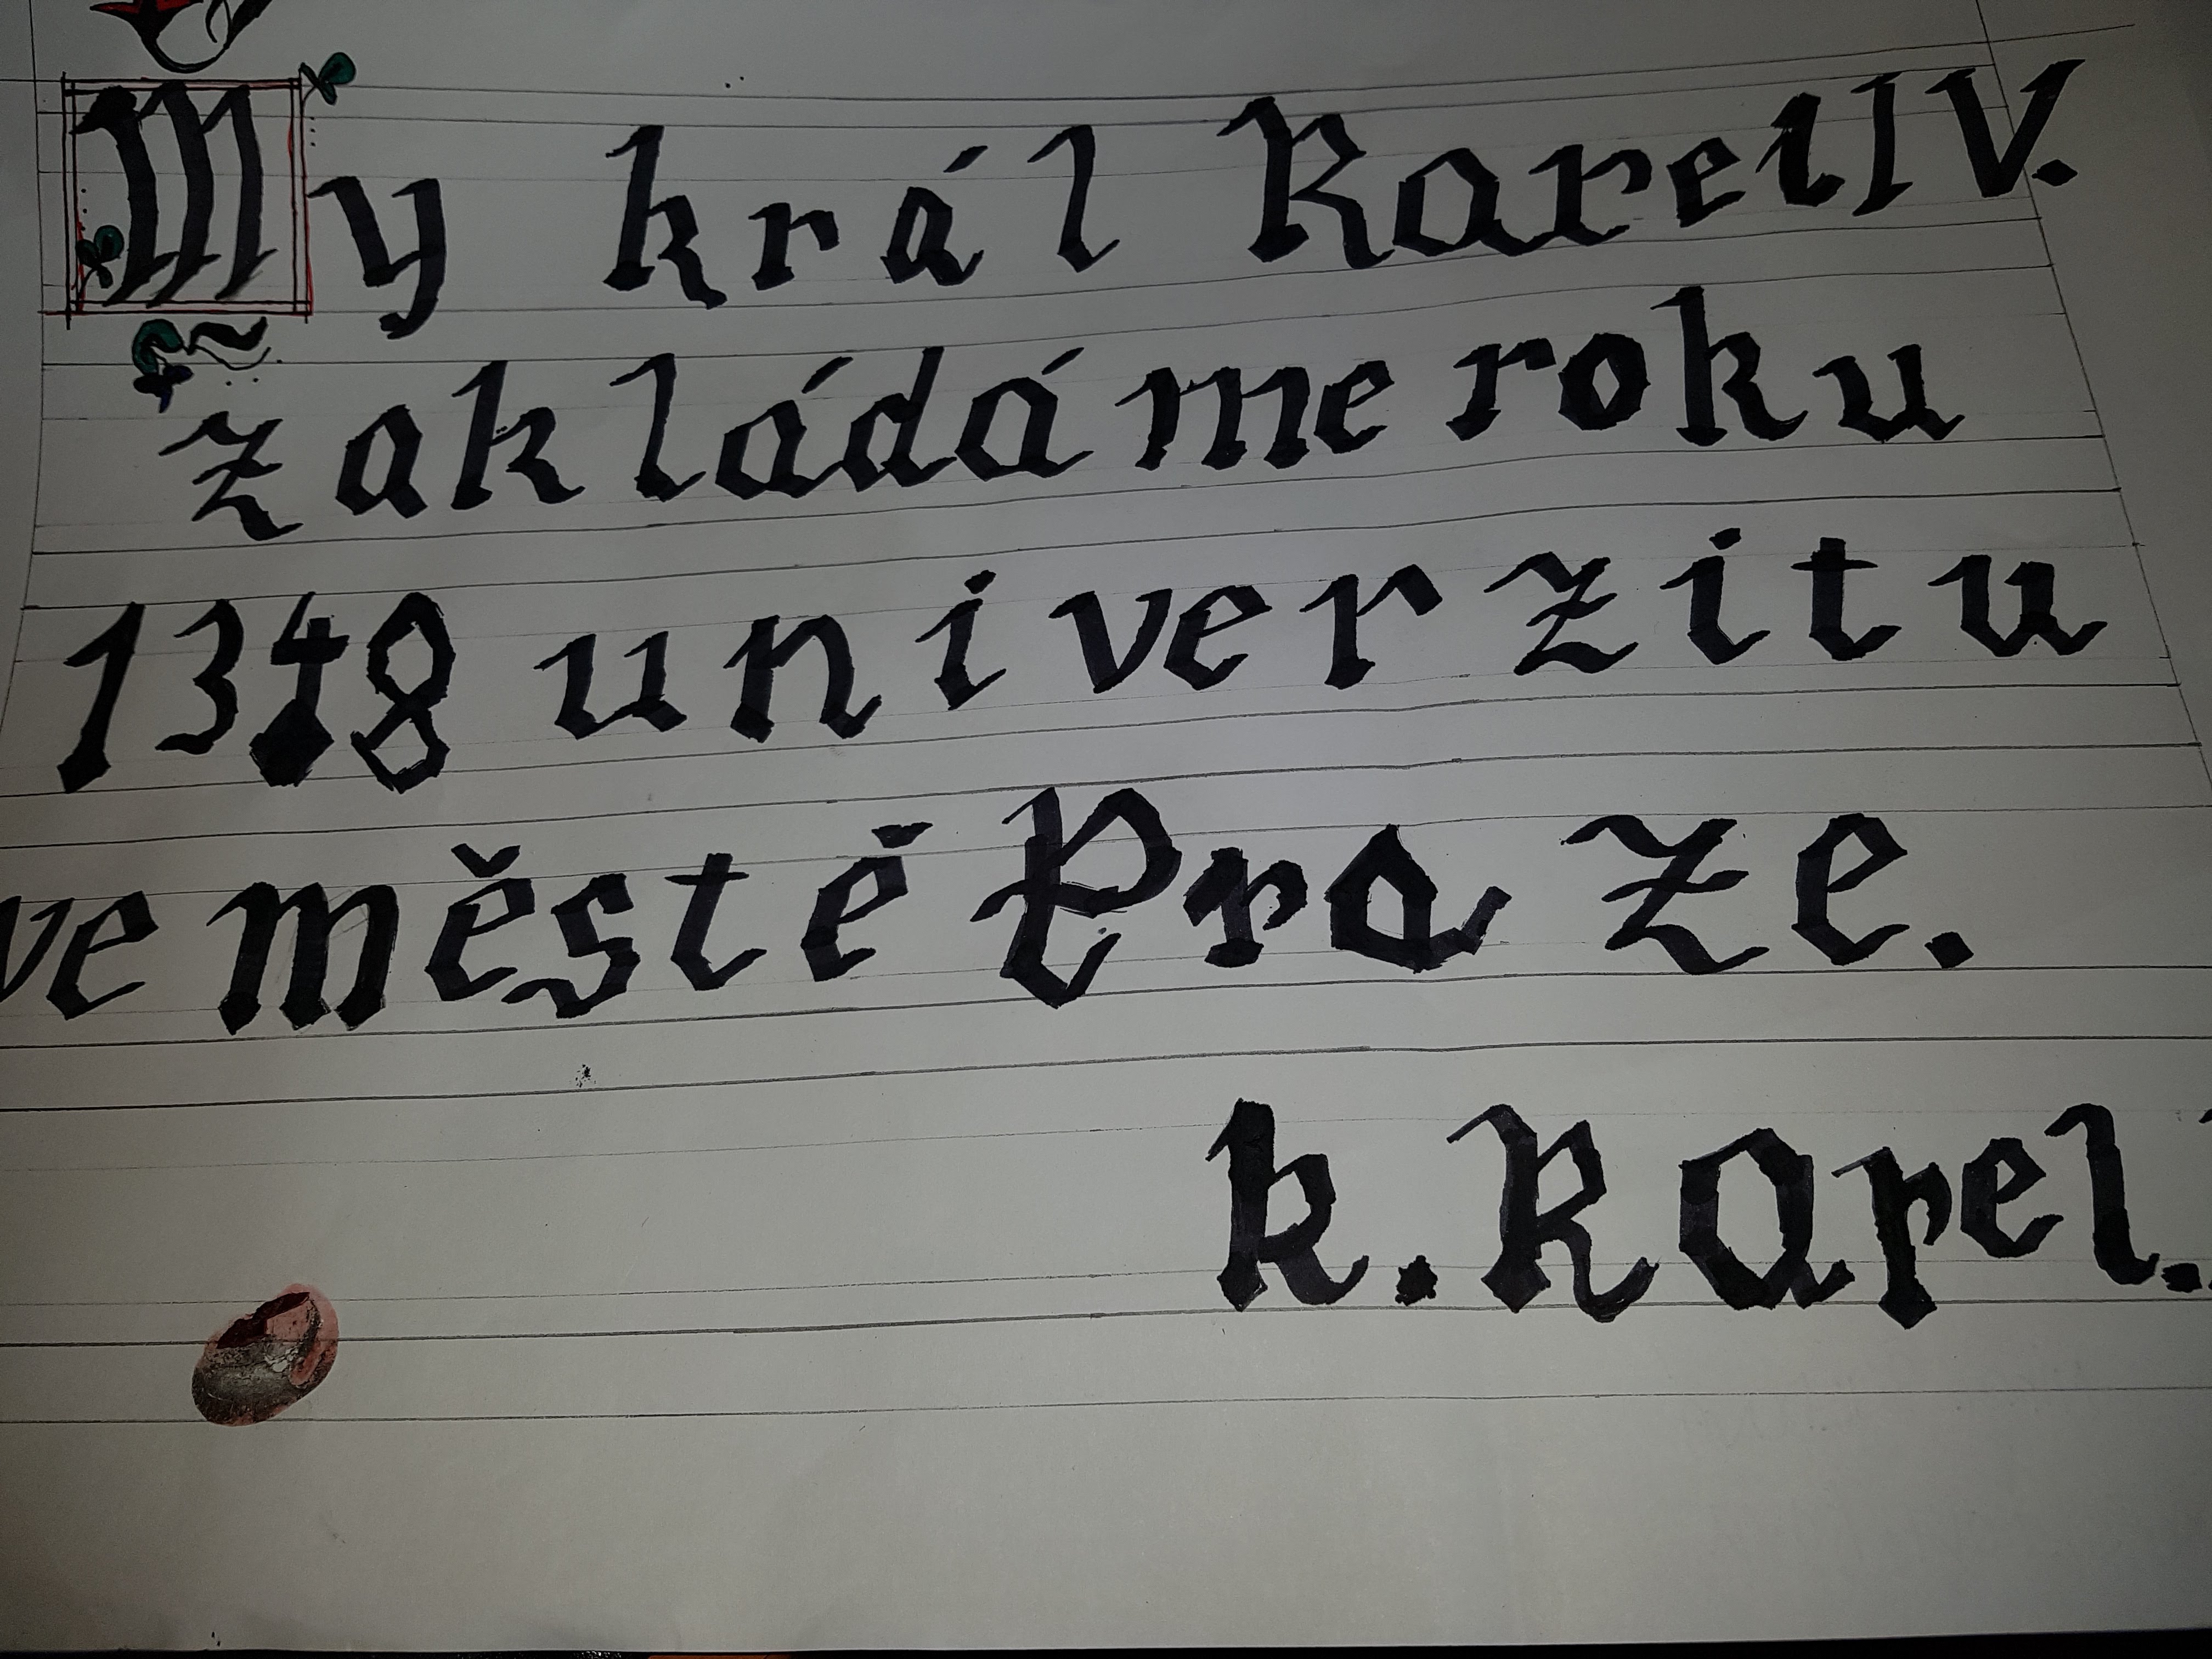 My král Karel IV.
zakládáme roku
1348 univerzitu
ve městě Praze.
k. Karel.